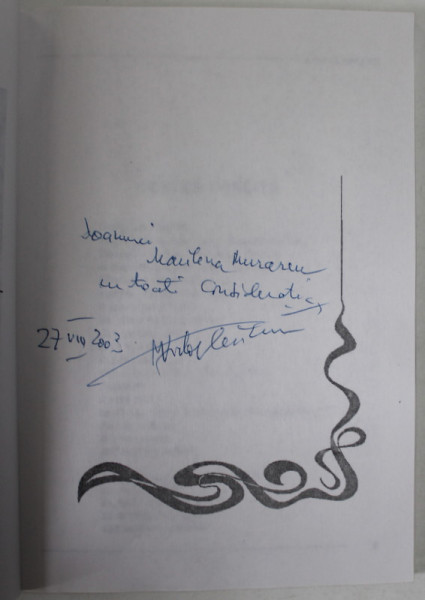 Doamnei
Marilena Murariu
cu toată considerația
27 VIII 2003